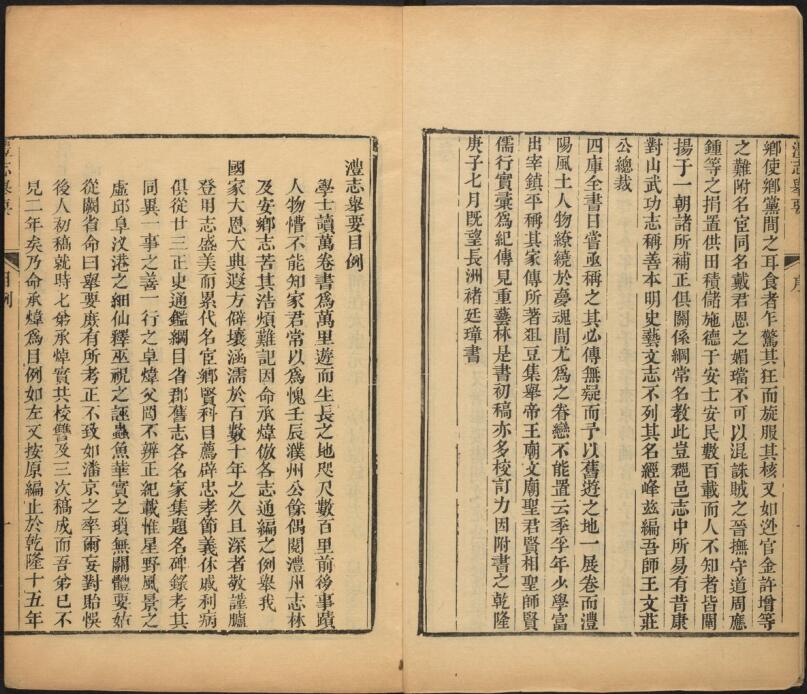 澧志舉要
序
鄉使鄉黨間之耳食者乍驚其狂而旋服其核又如迯官金許增等
之難附名宦同名戴君恩之媚璫不可以混誅賊之晉撫守道周應
鍾等之捐置供田積儲施德于安士安民數百載而人不知者皆闡
揚于一朝諸所補正俱關係綱常名教此豈郡邑志中所易有昔康
對山武功志稱善本明史藝文志不列其名經峰茲編吾師王文莊
公總裁
四庫全書日嘗亟稱之其必傳無疑而予以舊遊之地一展卷而澧
陽風土人物繚繞於夢魂間尤爲之眷戀不能置云季孚年少學富
出宰鎮平稱其家傳所著俎豆集舉帝王廟文廟聖君賢相聖師賢
儒行實彙爲紀傳見重藝林是書初稿亦多校訂力因附書之乾隆
庚子七月既望長洲褚廷璋書
澧志舉要目例
學士讀萬卷書爲萬里遊而生長之地咫尺數百里前後事蹟
人物懵不能知家君常以爲愧壬辰濮州公餘偶閱澧州志林
及安鄉志苦其浩煩難記因命承煒倣各志通編之例舉我
國家大恩大典遐方僻壤涵濡於百數十年之久且深者敬謹臚
登用志盛美而累代名宦鄉賢科目薦辟忠孝節義休戚利病
俱從廿三正史通鑑綱目省郡舊志各名家集題名碑錄考其
同異一事之善一行之卓煒父罔不辨正紀載惟星野風景之
虛邱阜汊港之細仙釋巫祝之誣蟲魚華實之瑣無關體要姑
從闕省命曰舉要庶有所考正不致如潘京之率爾妄對貽悞
後人初稿就時七弟承焯實共校讐及三次稿成而吾弟已不
見二年矣乃命承煒爲目例如左又按原編止於乾隆十五年
澧志舉要
目例
一